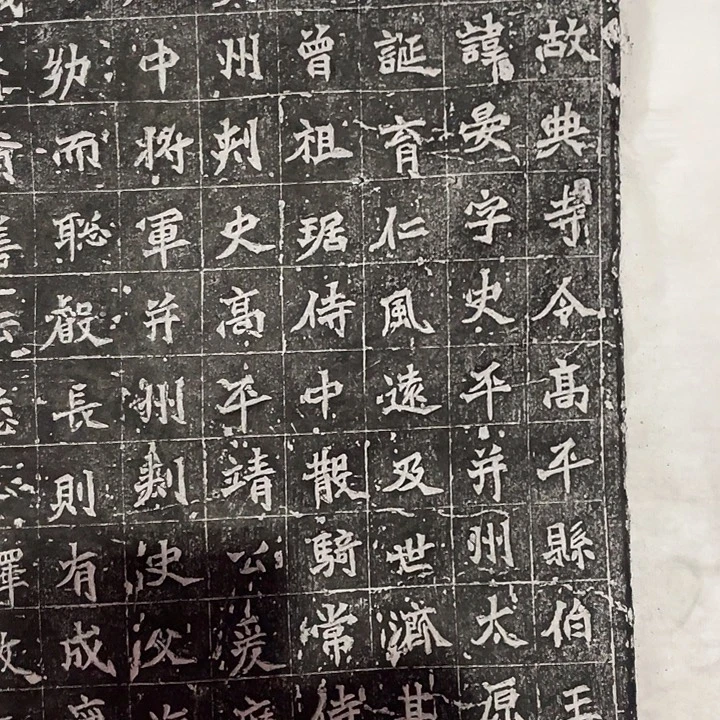 故典寺令高平縣伯王
諱晏字史平并州太原
誕育仁風遠及世濟其
曾祖琚侍中散騎常侍
州刺史高平靖公爰
中將軍并州刺史父
幼而聡叡長則有成